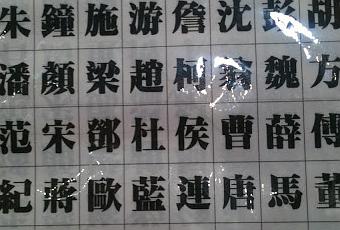 朱鐘施游詹沈彭胡
潘顏梁趙柯翁魏方
范宋鄧杜侯曹薛傅
紀蔣歐藍連唐馬董